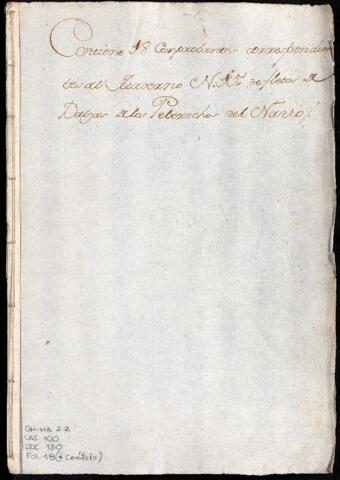 Contiene 18 Comprobantes correspondien
tes al Quaderno N. 1º. de fletes de
Balsas de los Peltrechos del Navio /
GM-MA 2.2
CAJ. 100
DOC. 130
FOL. 18 (+ carátula)